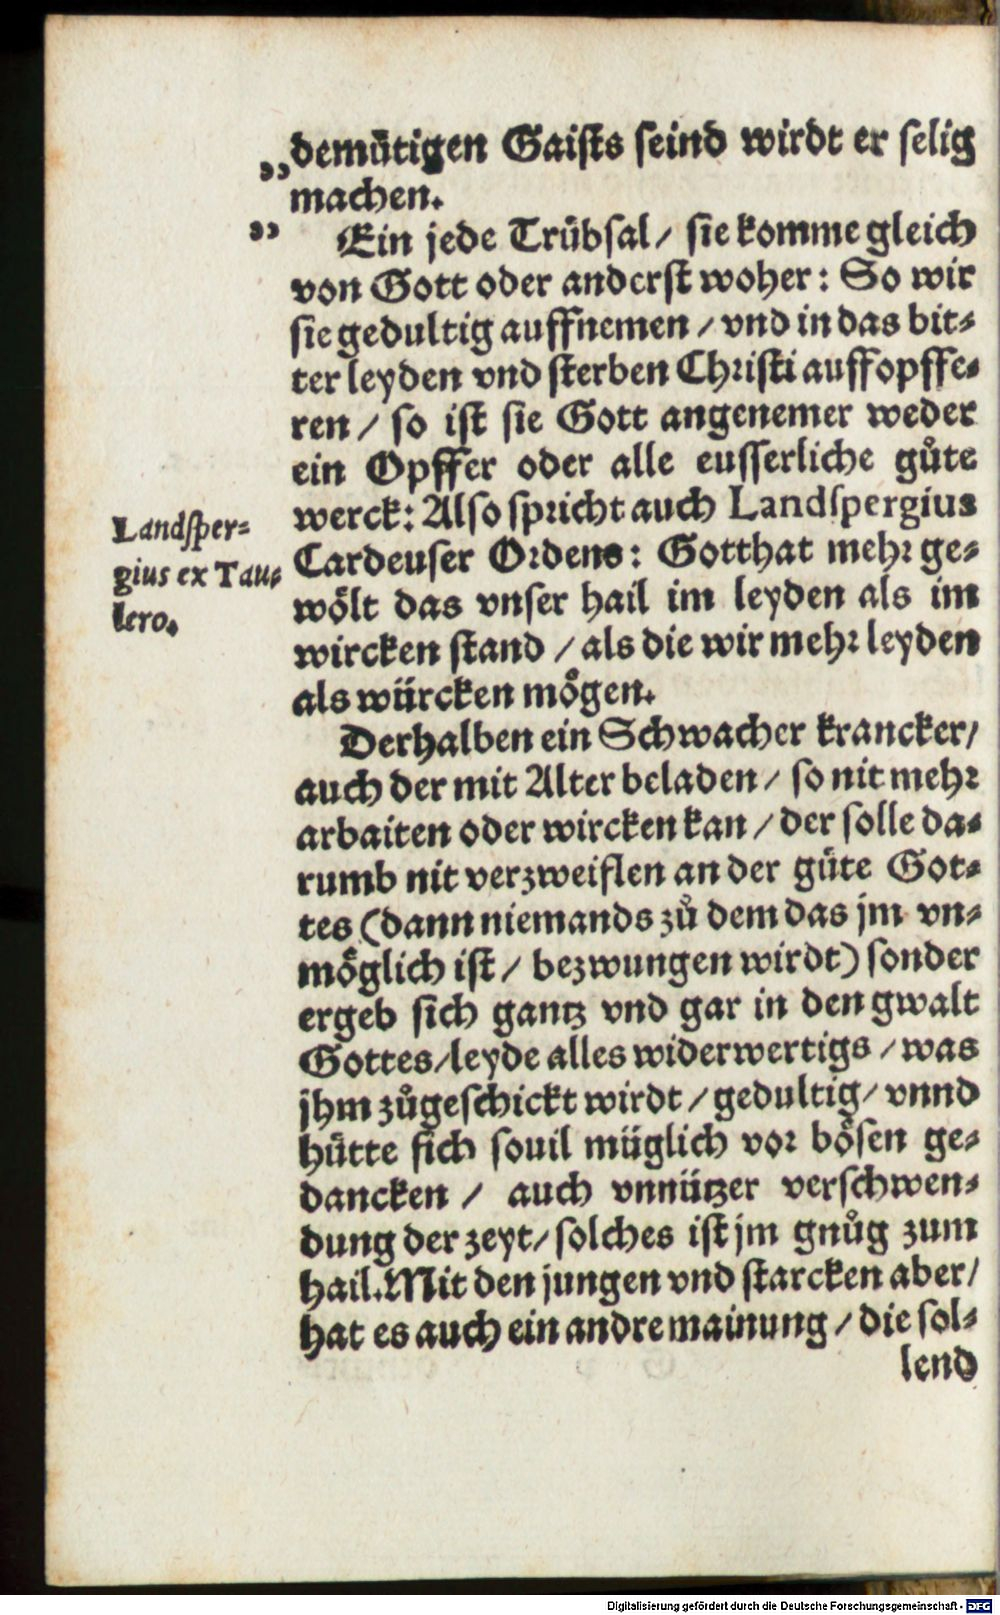 „demütigen Gaists seind wirdt er selig
„ machen.
Ein jede Trübsal/ sie komme gleich
von Gott oder anderst woher: So wir
sie gedultig auffnemen / vnd in das bit⸗
ter leyden vnd sterben Christi auffopffe⸗
ren / so ist sie Gott angenemer weder
ein Opffer oder alle eusserliche gůte
werck: Also spricht auch Landspergius
Cardeuser Ordens: Gott hat mehr ge⸗
wölt das vnser hail im leyden als im
wircken stand / als die wir mehr leyden
als würcken mögen.
Landsper⸗
gius ex Tau⸗
lero.
Derhalben ein Schwacher krancker/
auch der mit Alter beladen / so nit mehr
arbaiten oder wircken kan / der solle da⸗
rumb nit verzweiflen an der güte Got⸗
tes (dann niemands zů dem das jm vn⸗
möglich ist / bezwungen wirdt) sonder
ergeb sich gantz vnd gar in den gwalt
Gottes/leyde alles widerwertigs / was
jhm zůgeschickt wirdt / gedultig/ vnnd
hütte sich souil müglich vor bösen ge⸗
dancken / auch vnnützer verschwen⸗
dung der zeyt/ solches ist jm gnůg zum
hail. Mit den jungen vnd starcken aber/
hat es auch ein andre mainung / die sol⸗
lend
Digitalisierung gefördert durch die Deutsche Forschungsgemeinschaft - DFG